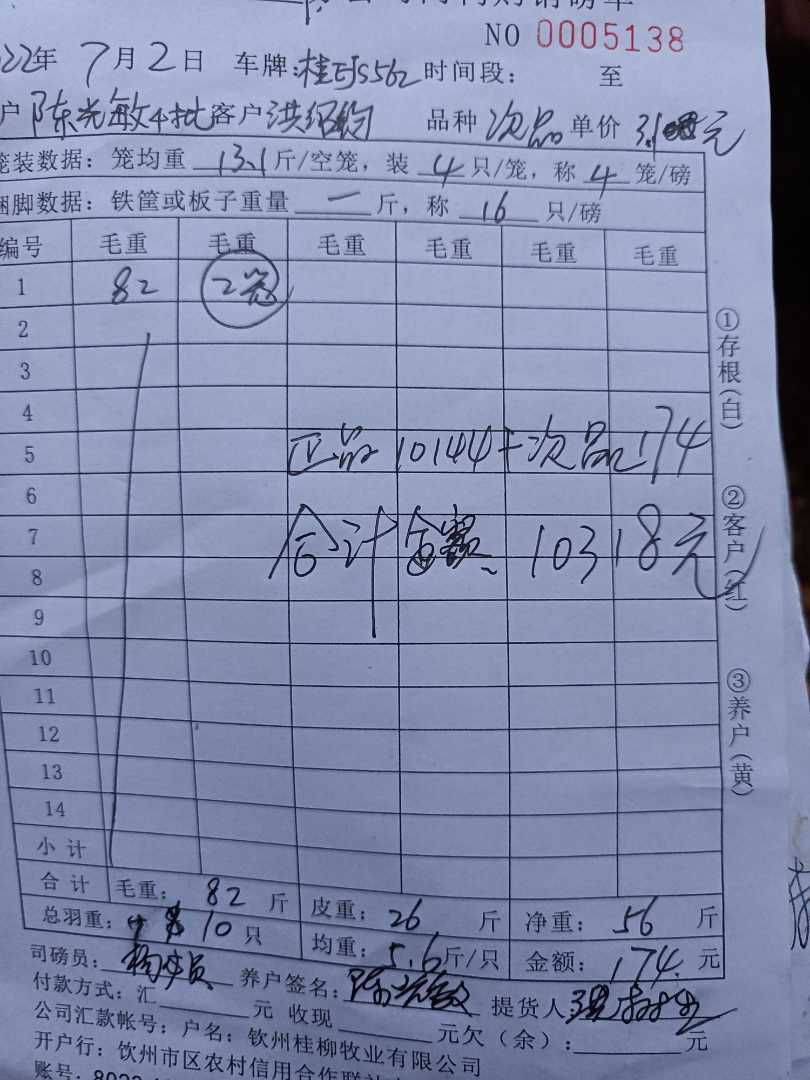 NO 0005138
22年 7月2日 车牌: 时间段： 至
户 陈光敏4批 客户 品种 次品 单价 元
笼装数据：笼均重 13.1 斤/空笼，装 4 只/笼，称 4 笼/磅
捆脚数据：铁筐或板子重量 一 斤，称 16 只/磅
编号 毛重 毛重 毛重 毛重 毛重 毛重
1 82 2笼
2
3
4
5 正品10144+次品174
6
7 合计金额 10318元
8
9
10
11
12
13
14
小计
合计 毛重： 82 斤 皮重： 26 斤 净重： 56 斤
总羽重： 10 只 均重： 5.6 斤/只 金额： 174. 元
司磅员： 养户签名： 陈光敏 提货人
付款方式：汇 元 收现 元欠（余）： 元
公司汇款帐号：户名：钦州桂柳牧业有限公司
开户行：饮州市区农村信用合作联社
账号：
①存根（白）
②客户（红）
③养户（黄）